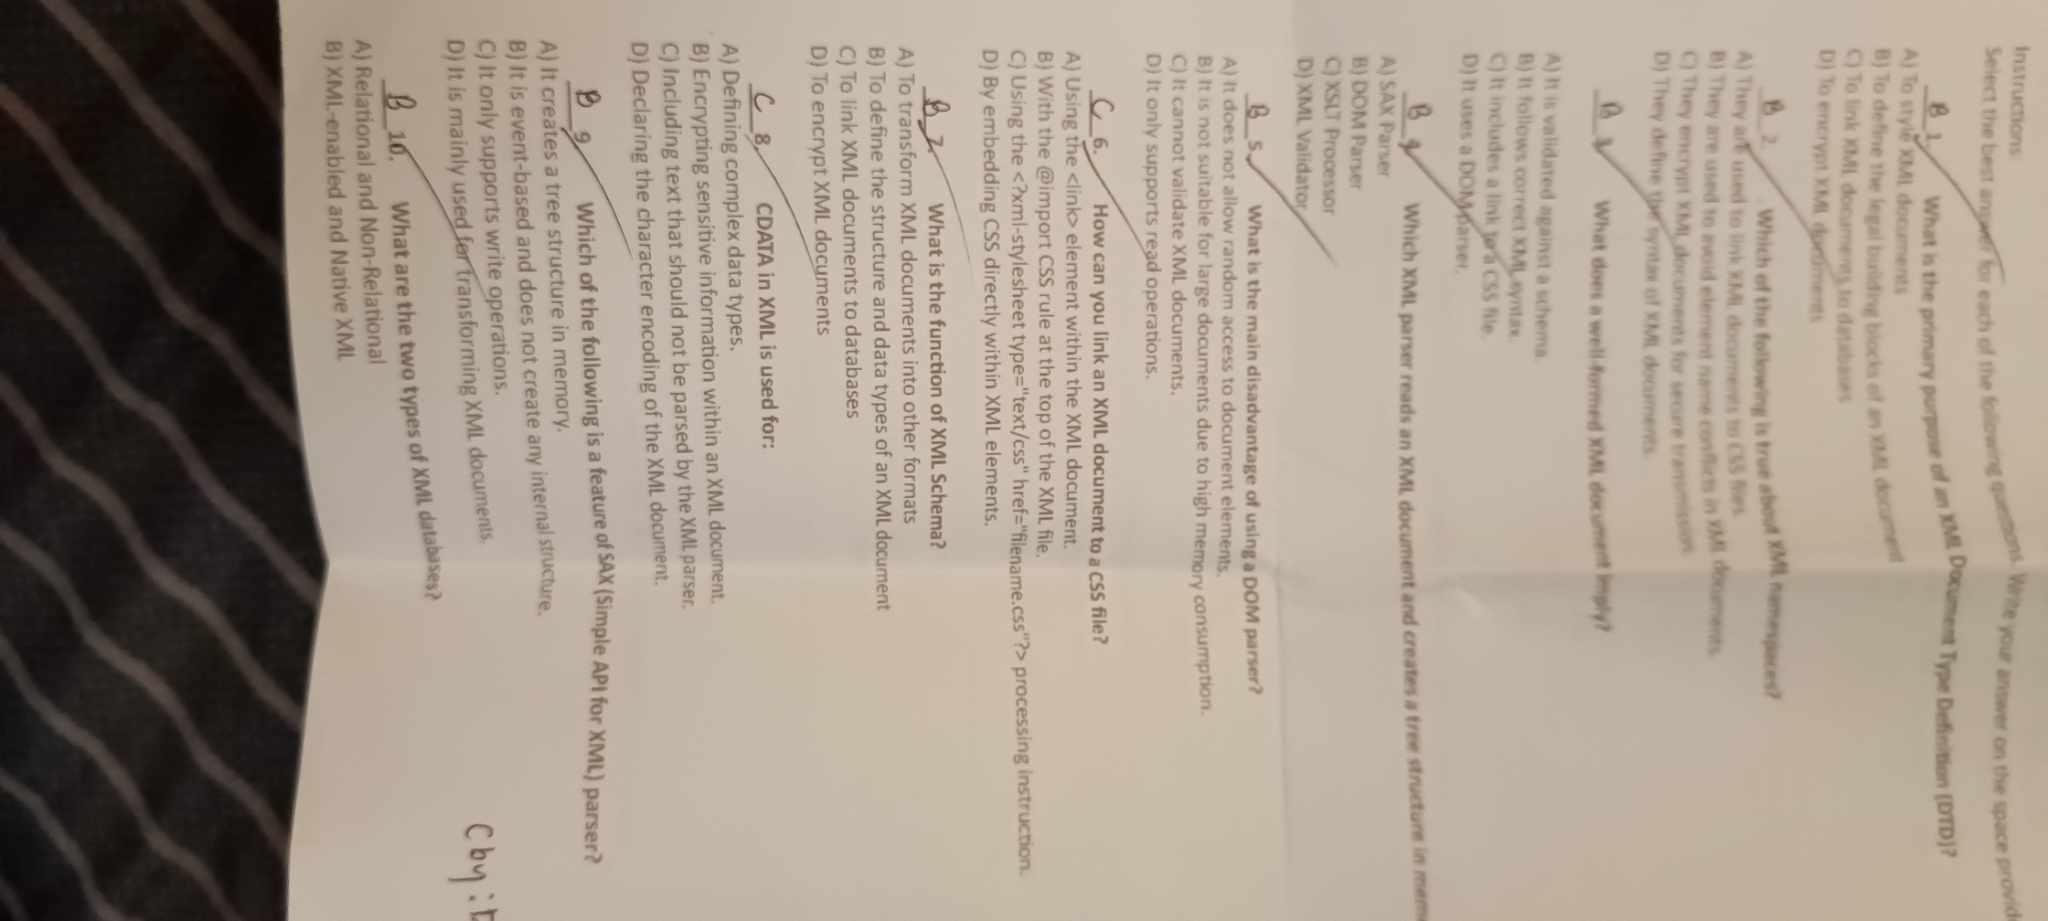 Instructions:
Select the best answer for each of the following questions. Write your answer on the space provid
B 1. What is the primary purpose of an XML Document Type Definition (DTD)?
A) To style XML documents
B) To define the legal building blocks of an XML document
C) To link XML documents to databases
D) To encrypt XML documents
B 2. Which of the following is true about XML namespaces?
A) They are used to link XML documents to CSS files.
B) They are used to avoid element name conflicts in XML documents.
C) They encrypt XML documents for secure transmission.
D) They define the syntax of XML documents.
B 3. What does a well-formed XML document imply?
A) It is validated against a schema.
B) It follows correct XML syntax.
C) It includes a link to a CSS file.
D) It uses a DOM parser.
B 4. Which XML parser reads an XML document and creates a tree structure in mem
A) SAX Parser
B) DOM Parser
C) XSLT Processor
D) XML Validator
B 5. What is the main disadvantage of using a DOM parser?
A) It does not allow random access to document elements.
B) It is not suitable for large documents due to high memory consumption.
C) It cannot validate XML documents.
D) It only supports read operations.
C 6. How can you link an XML document to a CSS file?
A) Using the <link> element within the XML document.
B) With the @import CSS rule at the top of the XML file.
C) Using the <?xml-stylesheet type="text/css" href="filename.css"?> processing instruction.
D) By embedding CSS directly within XML elements.
B 7. What is the function of XML Schema?
A) To transform XML documents into other formats
B) To define the structure and data types of an XML document
C) To link XML documents to databases
D) To encrypt XML documents
C 8. CDATA in XML is used for:
A) Defining complex data types.
B) Encrypting sensitive information within an XML document.
C) Including text that should not be parsed by the XML parser.
D) Declaring the character encoding of the XML document.
B 9. Which of the following is a feature of SAX (Simple API for XML) parser?
A) It creates a tree structure in memory.
B) It is event-based and does not create any internal structure.
C) It only supports write operations.
D) It is mainly used for transforming XML documents.
B 10. What are the two types of XML databases?
A) Relational and Non-Relational
B) XML-enabled and Native XML
C by: